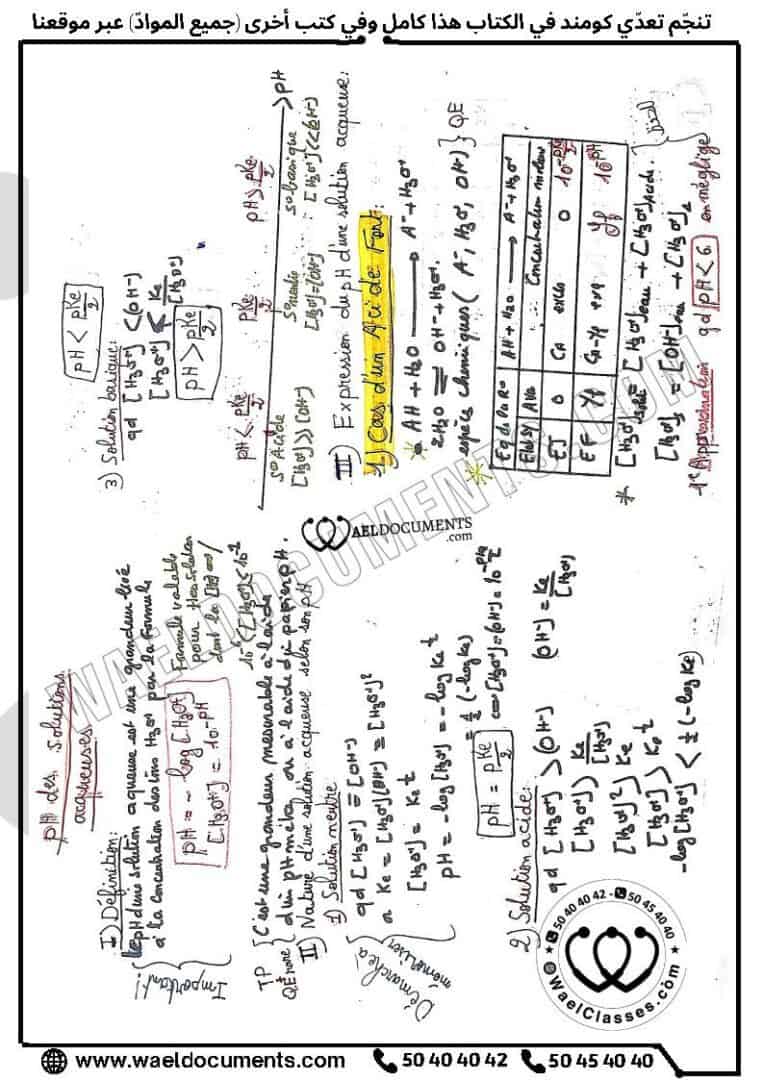 تنجّم تعدّي كومند في الكتاب هذا كامل وفي كتب أخرى (جميع الموادّ) عبر موقعنا
pH des solutions
aqueuses
I) Définition:
le pH d'une solution aqueuse est une grandeur lié
à la concentration des ions H3O+ par la formule
pH = - log [H3O+]
[H3O+] = 10-pH
Formule valable
pour des solution
dont la
Important!!
TP
C'est une grandeur mesurable à l'aide
d'un pH mètre, ou à l'aide du papier pH.
II) Nature d'une solution acqueuse selon son pH
1) Solution neutre
qd [H3O+] = [OH-]
or Ke = [H3O+][OH-] = [H3O+]²
[H3O+] = Ke ½
pH = -log [H3O+] = -log Ke ½
= ½ (-log Ke)
pH = pKe/2
[H3O+] = [OH-] = 10-pKe/2
Démarche à
mémoriser
2) Solution acide:
qd [H3O+] > [OH-]
[OH-] = Ke/[H3O+]
[H3O+] > Ke/[H3O+]
[H3O+]² > Ke
[H3O+] > Ke ½
-log [H3O+] < ½ (-log Ke)
pH < pKe/2
3) Solution basique:
qd [H3O+] < [OH-]
[H3O+] < Ke/[H3O+]
pH > pKe/2
pH < pKe/2
pKe/2
pH > pKe/2
pH
S° Acide
S° neutre
S° basique
[H3O+] >> [OH-]
[H3O+] = [OH-]
[H3O+] << [OH-]
III) Expression du pH d'une solution acqueuse:
1) Cas d'un Acide Fort:
* AH + H2O → A- + H3O+
2H2O ⇌ OH- + H3O+
* espèces chimiques (A-, H3O+, OH-) } QE
Eq de la R° AH + H2O → A- + H3O+
Etat Sy Ava Concentration molaire
EI 0 CA excès 0 10-pKe/2
EF yf CA-yf excès yf 10-pH
* [H3O+] = [H3O+]eau + [H3O+]Acide.
[H3O+] = [OH-]eau + [H3O+]
1° Approximation qd pH < 6 on néglige
WAELDOCUMENTS
.com
WAELDOCUMENTS.COM
50 40 40 42 - 50 45 40 40
WaelClasses.com
www.waeldocuments.com 50 40 40 42 50 45 40 40